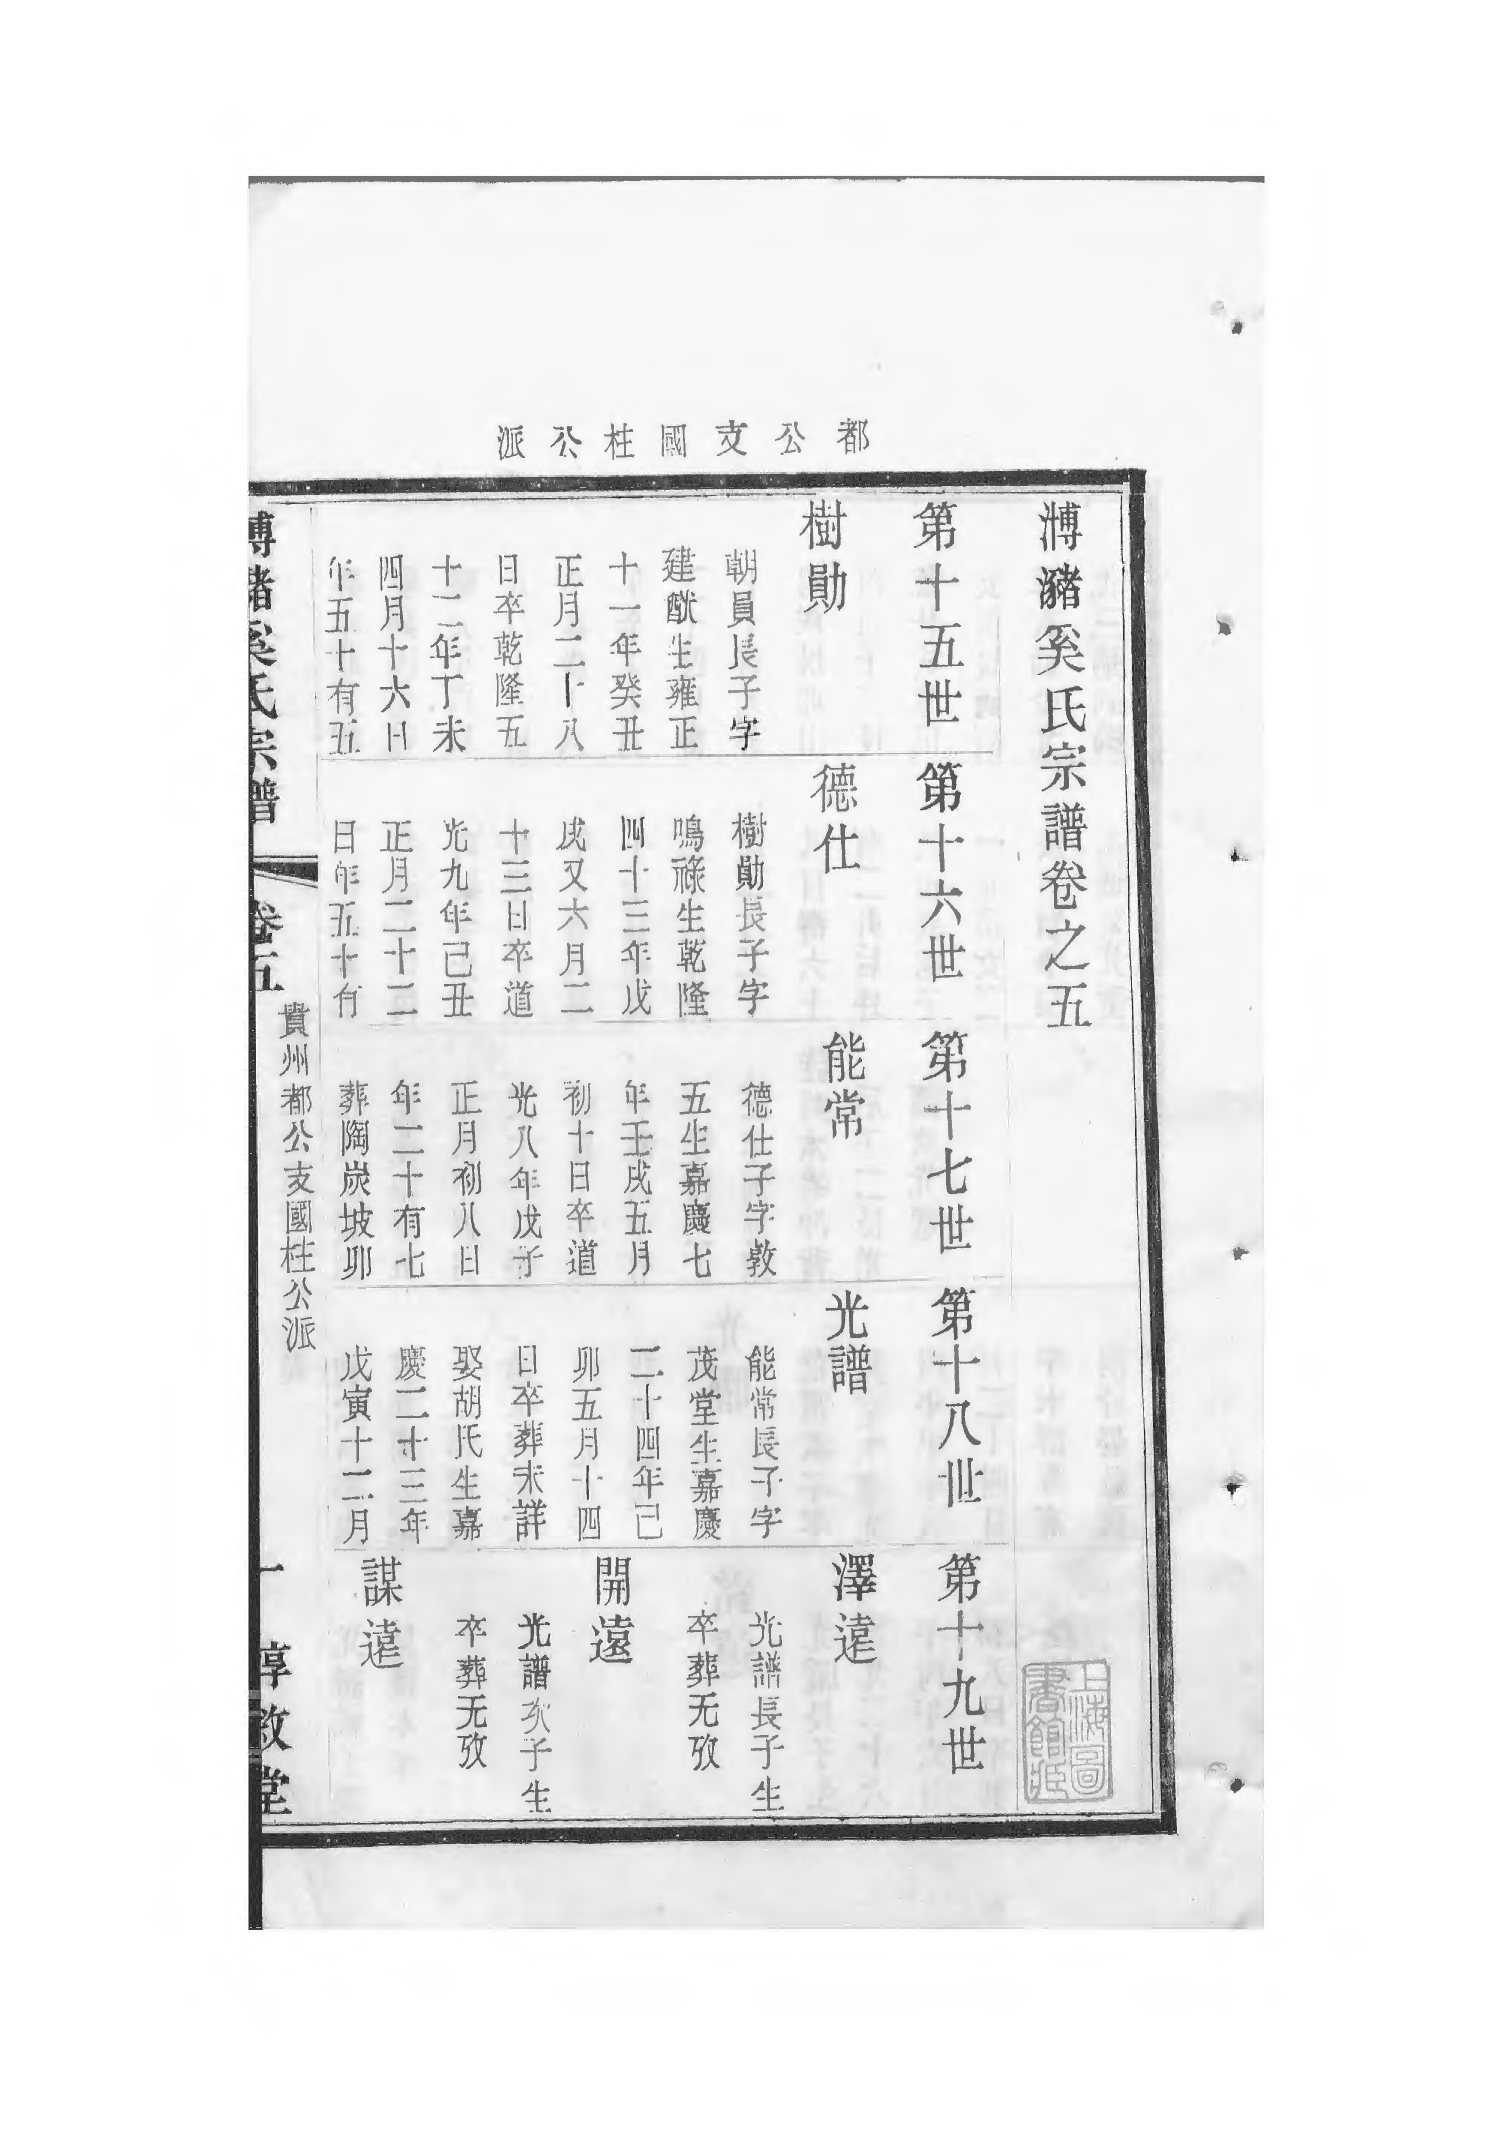 都公支國柱公派
溥瀦奚氏宗譜卷之五
第十五世
樹勛
朝員長子字
建猷生雍正
十一年癸丑
正月二十八
日卒乾隆五
十二年丁未
四月十六日
年五十有五
第十六世
德仕
樹勛長子字
鳴祿生乾隆
四十三年戊
戌又六月二
十三日卒道
光九年己丑
正月二十二
日年五十有
第十七世
能常
德仕子字敦
五生嘉慶七
年壬戌五月
初十日卒道
光八年戊子
正月初八日
年二十有七
葬陶炭坡卯
第十八世
光譜
能常長子字
茂堂生嘉慶
二十四年己
卯五月十四
日卒葬未詳
娶胡氏生嘉
慶二十三年
戊寅十二月
第十九世
澤遠
光譜長子生
卒葬无攷
開遠
光譜次子生
卒葬无攷
謀遠
溥瀦奚氏宗譜
卷五
貴州都公支國柱公派
一
惇敘堂
上海圖
書館藏